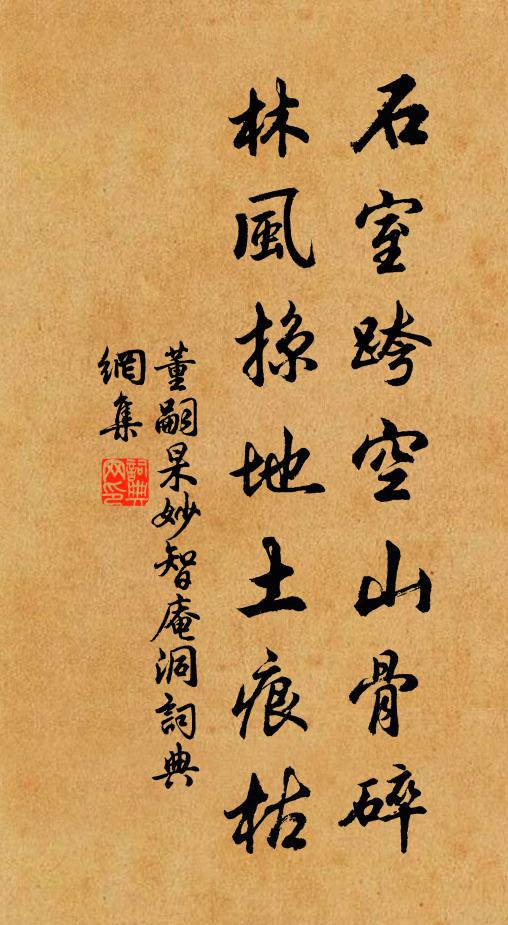 石室跨空山骨碎
林風掠地土痕枯
董嗣杲妙智庵洞詞典
網集
詞典
網印